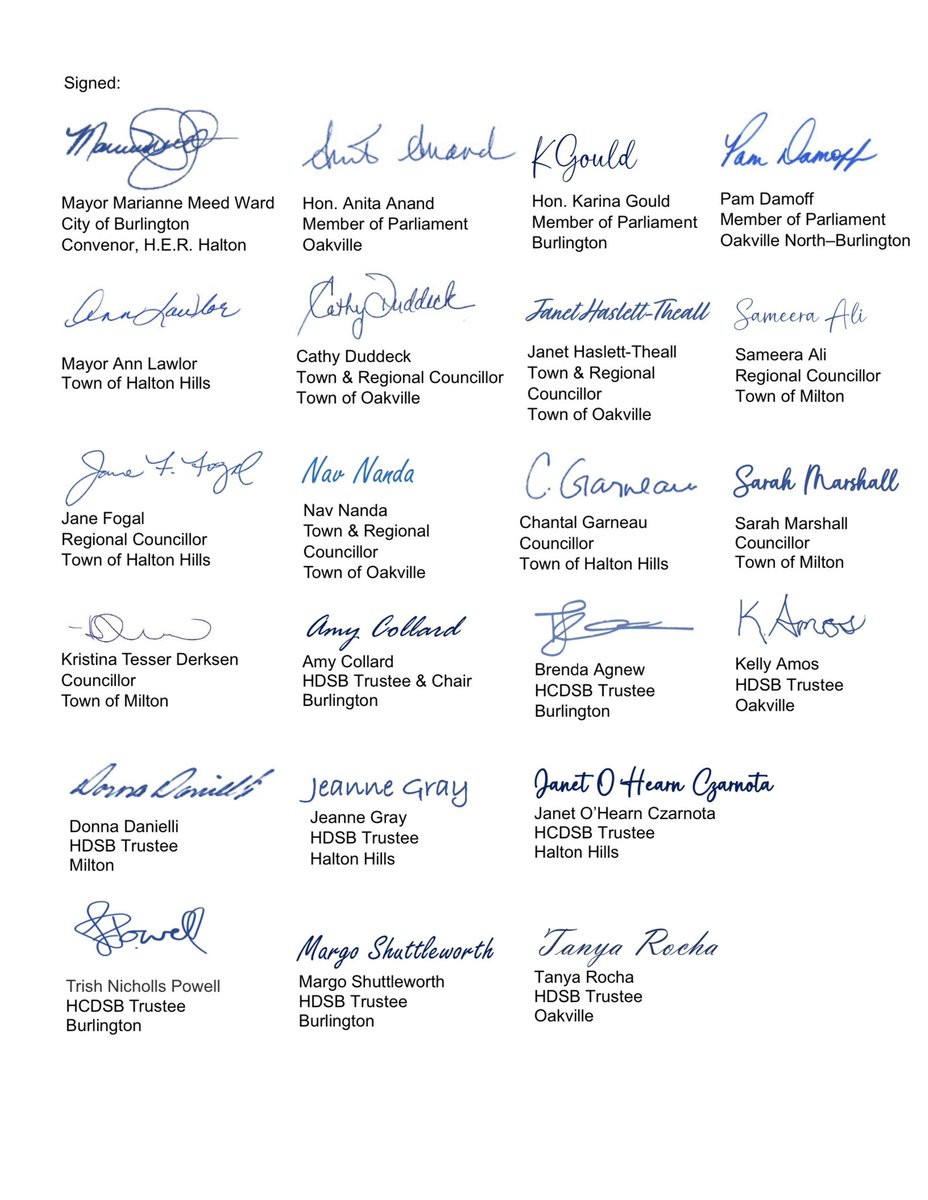 Signed:
Anita Anand
K Gould
Pam Damoff
Mayor Marianne Meed Ward
City of Burlington
Convenor, H.E.R. Halton
Hon. Anita Anand
Member of Parliament
Oakville
Hon. Karina Gould
Member of Parliament
Burlington
Pam Damoff
Member of Parliament
Oakville North–Burlington
Ann Lawlor
Cathy Duddeck
Janet Haslett-Theall
Sameera Ali
Mayor Ann Lawlor
Town of Halton Hills
Cathy Duddeck
Town & Regional Councillor
Town of Oakville
Janet Haslett-Theall
Town & Regional
Councillor
Town of Oakville
Sameera Ali
Regional Councillor
Town of Milton
Jane F. Fogal
Nav Nanda
C. Garneau
Sarah Marshall
Jane Fogal
Regional Councillor
Town of Halton Hills
Nav Nanda
Town & Regional
Councillor
Town of Oakville
Chantal Garneau
Councillor
Town of Halton Hills
Sarah Marshall
Councillor
Town of Milton
Amy Collard
K. Amos
Kristina Tesser Derksen
Councillor
Town of Milton
Amy Collard
HDSB Trustee & Chair
Burlington
Brenda Agnew
HCDSB Trustee
Burlington
Kelly Amos
HDSB Trustee
Oakville
Donna Danielli
Jeanne Gray
Janet O'Hearn Czarnota
Donna Danielli
HDSB Trustee
Milton
Jeanne Gray
HDSB Trustee
Halton Hills
Janet O’Hearn Czarnota
HCDSB Trustee
Halton Hills
Powell
Margo Shuttleworth
Tanya Rocha
Trish Nicholls Powell
HCDSB Trustee
Burlington
Margo Shuttleworth
HDSB Trustee
Burlington
Tanya Rocha
HDSB Trustee
Oakville